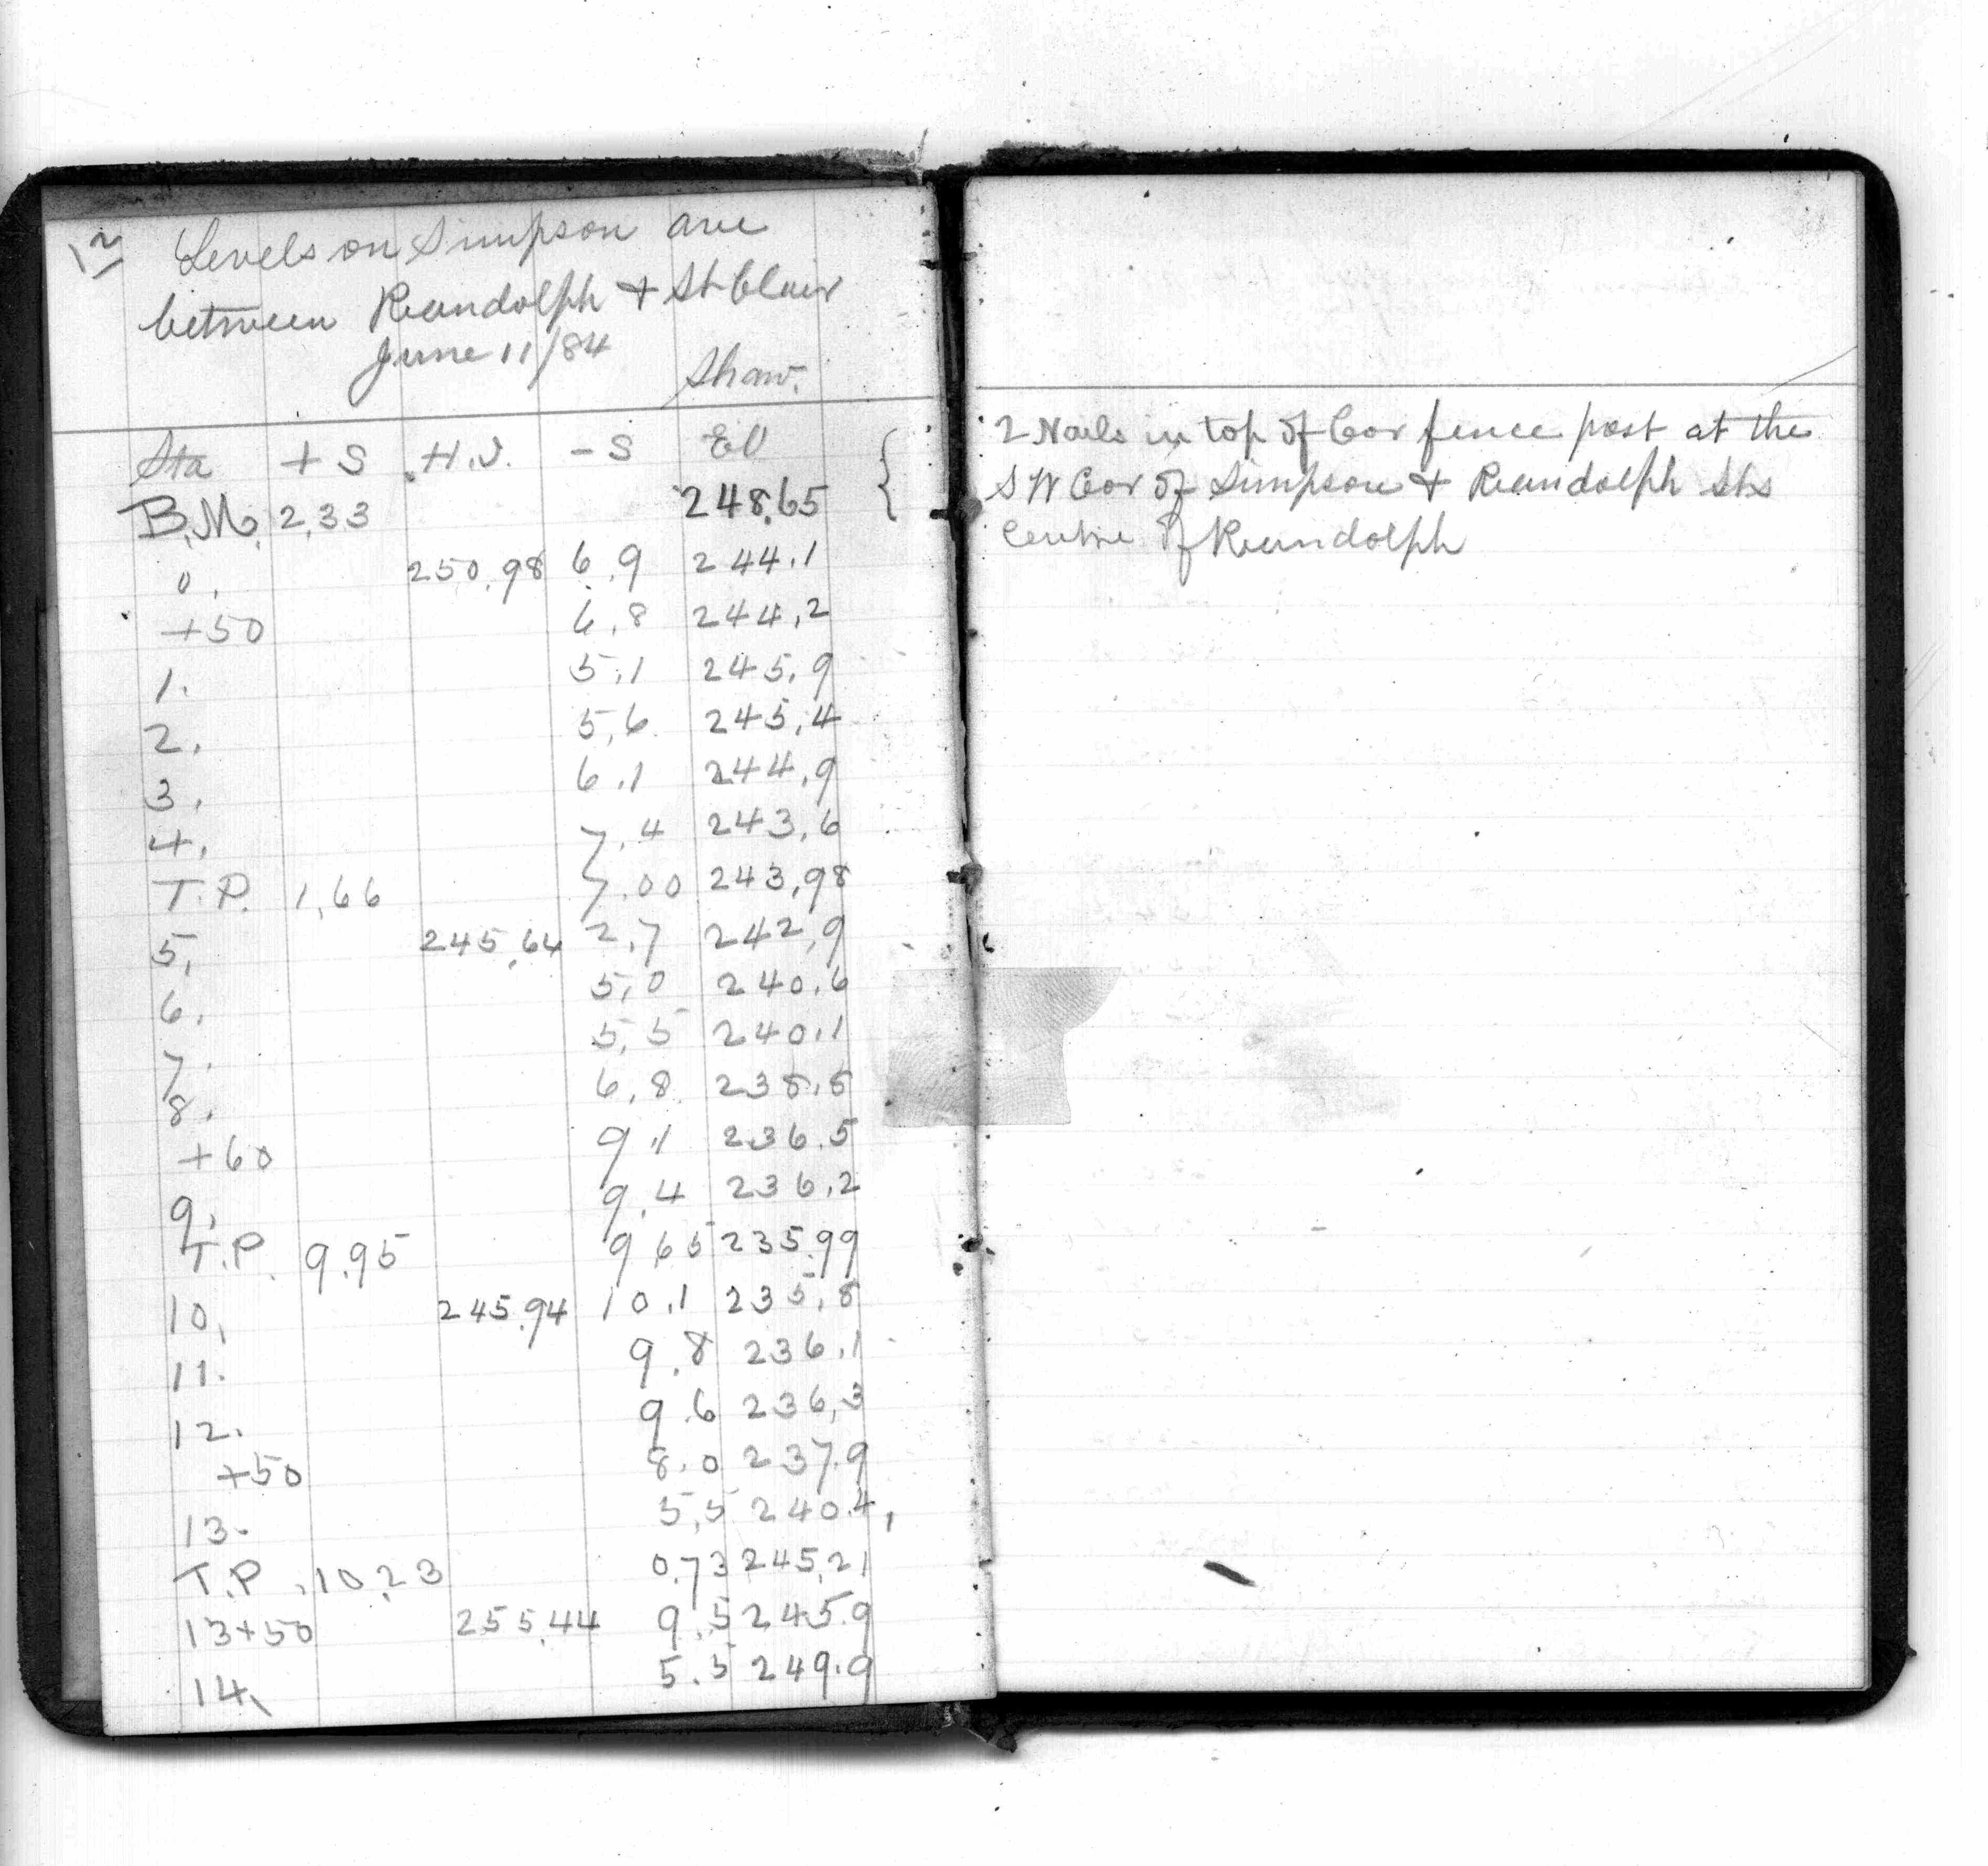 12 Levels on Simpson ave
between Randolph + St Clair
June 11/84
Shaw.
Sta + S H.I. - S El
B.M. 2.33 248.65
0. 250.98 6.9 244.1
+50 6.8 244.2
1. 5.1 245.9
2. 5.6 245.4
3. 6.1 244.9
4. 7.4 243.6
T.P. 1.66 7.00 243.98
5. 245.64 2.7 242.9
6. 5.0 240.6
7. 5.5 240.1
8. 6.8 238.8
+60 9.1 236.5
9. 9.4 236.2
T.P. 9.95 9.65 235.99
10. 245.94 10.1 235.8
11. 9.8 236.1
12. 9.6 236.3
+50 8.0 237.9
13. 5.5 240.4
T.P. 10.23 0.73 245.21
13+50 255.44 9.5 245.9
14. 5.5 249.9
2 Nails in top of Cor fence post at the
S W Cor of Simpson + Randolph Sts
Centre of Randolph